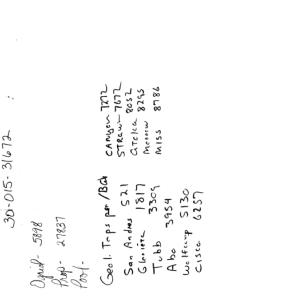 30-015-31672
Ogrid- 5898
Prop- 27837
Pool-
Geol. Tops per
San Andres 521
Glorieta 1817
Tubb 3309
Abo 3954
Wolfcamp 5130
Cisco 6257
Canyon 7272
Strawn 7672
Atoka 8052
Morrow 8295
Miss 8786